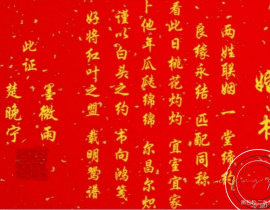 婚书
两姓联姻 一堂缔约
良缘永结 匹配同称
看此日桃花灼灼 宜室宜家
卜他年瓜瓞绵绵 尔昌尔炽
谨以白头之约 书向鸿笺
好将红叶之盟 载明鸳谱
此证
墨微雨
楚晚宁